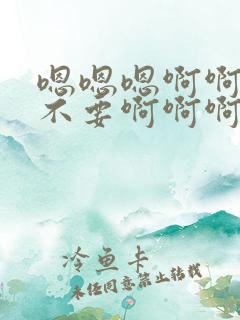 嗯嗯嗯啊啊
不要啊啊啊
冷鱼卡
未经同意禁止转载